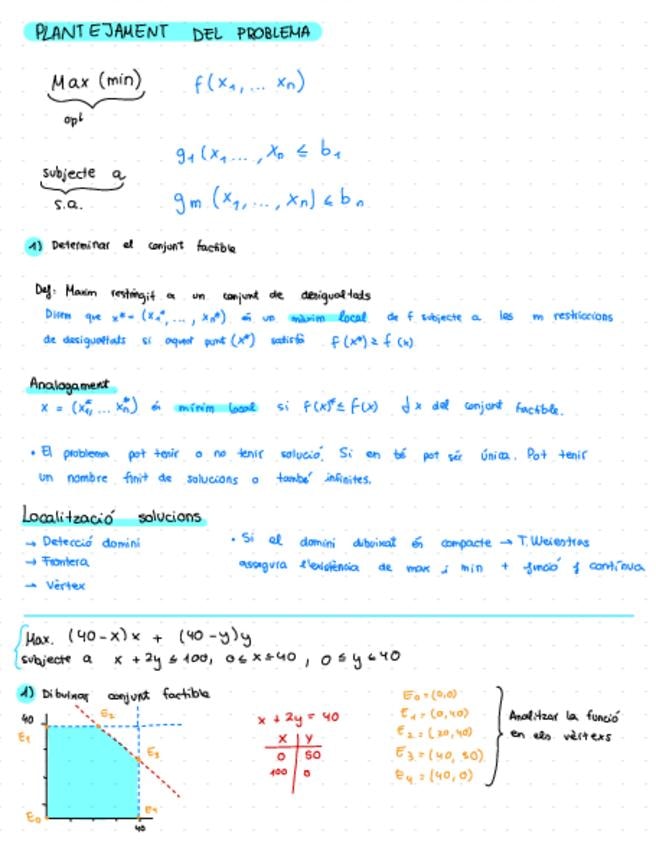 PLANTEJAMENT DEL PROBLEMA
Max (min) f(x₁,... xn)
opt
g₁(x₁..., xn ≤ b₁
subjecte a
s.a. gm (x₁,..., xn) ≤ bn
1) Determinar el conjunt factible
Def: Maxim restringit a un conjunt de desigualtads
Diem que x* = (x₁*,..., xn*) és un màxim local de f subjecte a les m restriccions
de desigualtats si aquest punt (x*) satisfà f(x*) ≥ f(x)
Analogament
x = (x₁*,... xn*) és mínim local si f(x)* ≤ f(x) ∀x del conjunt factible.
• El problema pot tenir o no tenir solució. Si en té pot sér única. Pot tenir
un nombre finit de solucions o també infinites.
Localització solucions
→ Detecció domini
→ Frontera
→ Vèrtex
• Si el domini dibuixat és compacte → T. Weiestras
assegura l'existència de max i min + funció f contínua
Max. (40-x)x + (40-y)y
subjecte a x + 2y ≤ 100, 0≤x≤40, 0≤y≤40
1) Dibuixar conjunt factible
40
E₁
E₂
E₃
E₀
E₄
40
x + 2y = 40
x | y
0 | 50
100 | 0
E₀ = (0,0)
E₁ = (0,40)
E₂ = (20,40)
E₃ = (40,30)
E₄ = (40,0)
Analitzar la funció
en els vèrtexs